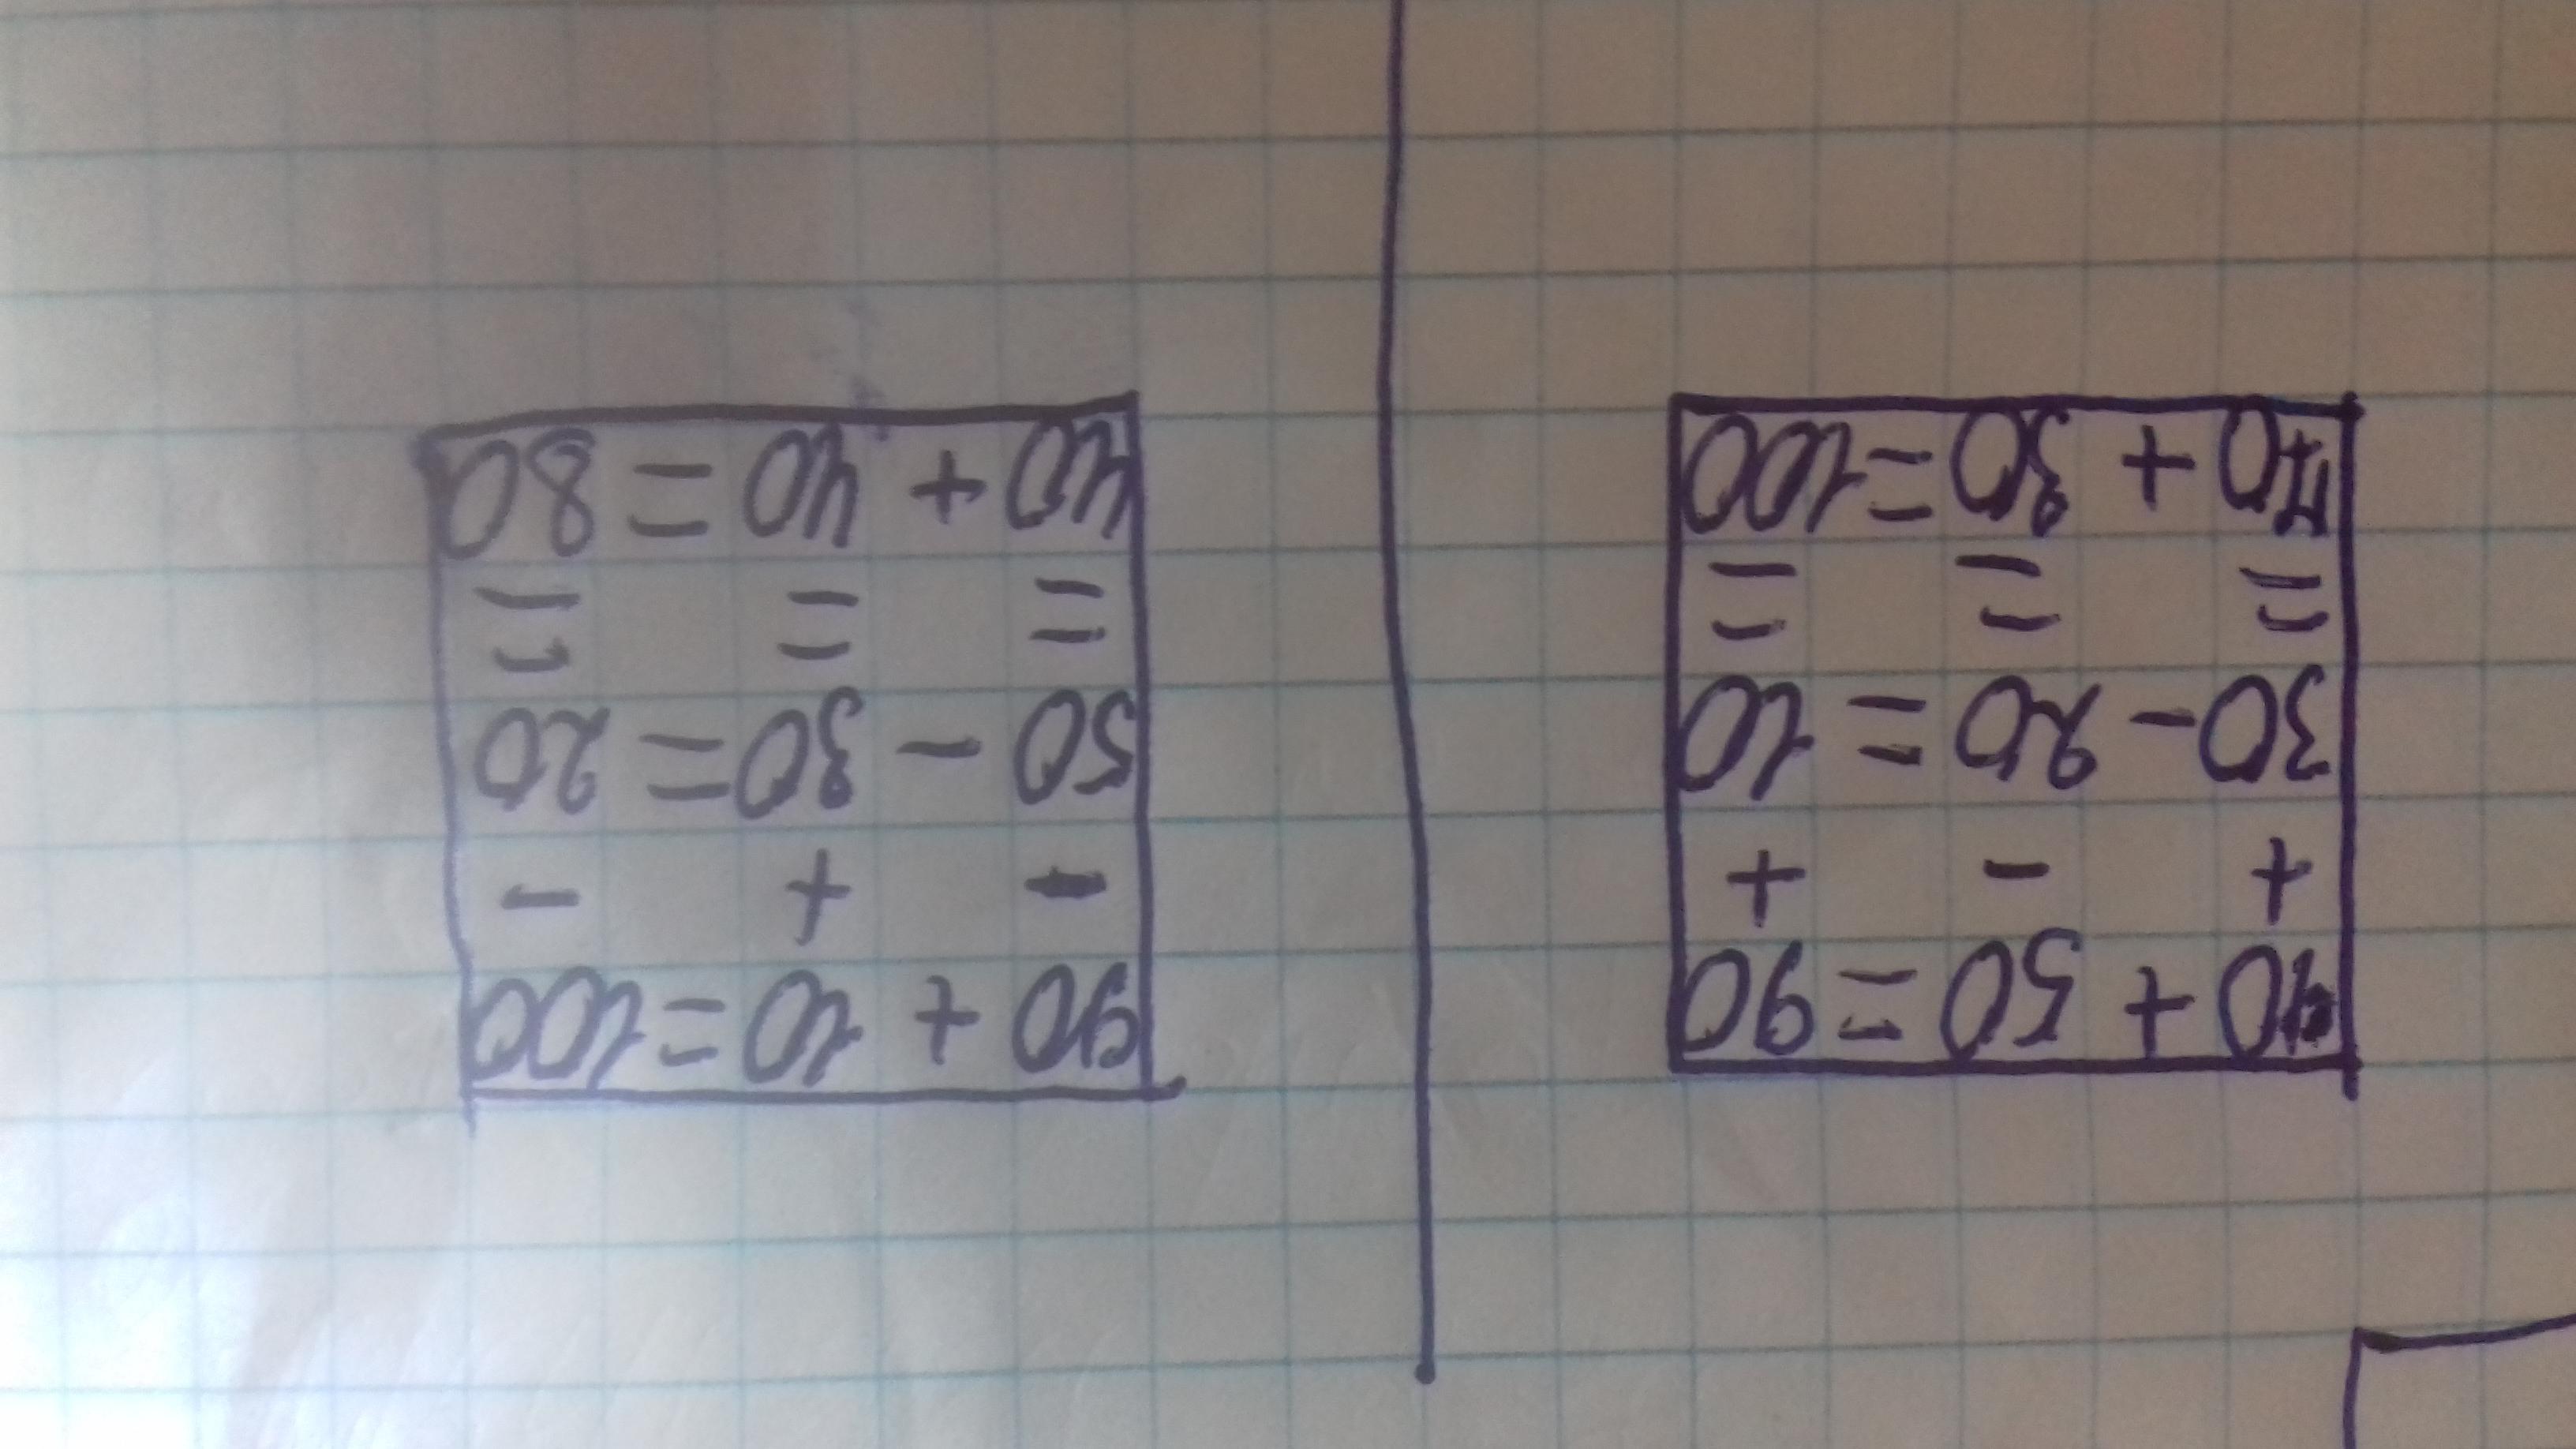 40 + 50 = 90
+ - +
30 - 20 = 10
= = =
70 + 30 = 100
90 + 10 = 100
- + -
50 - 30 = 20
= = =
40 + 40 = 80